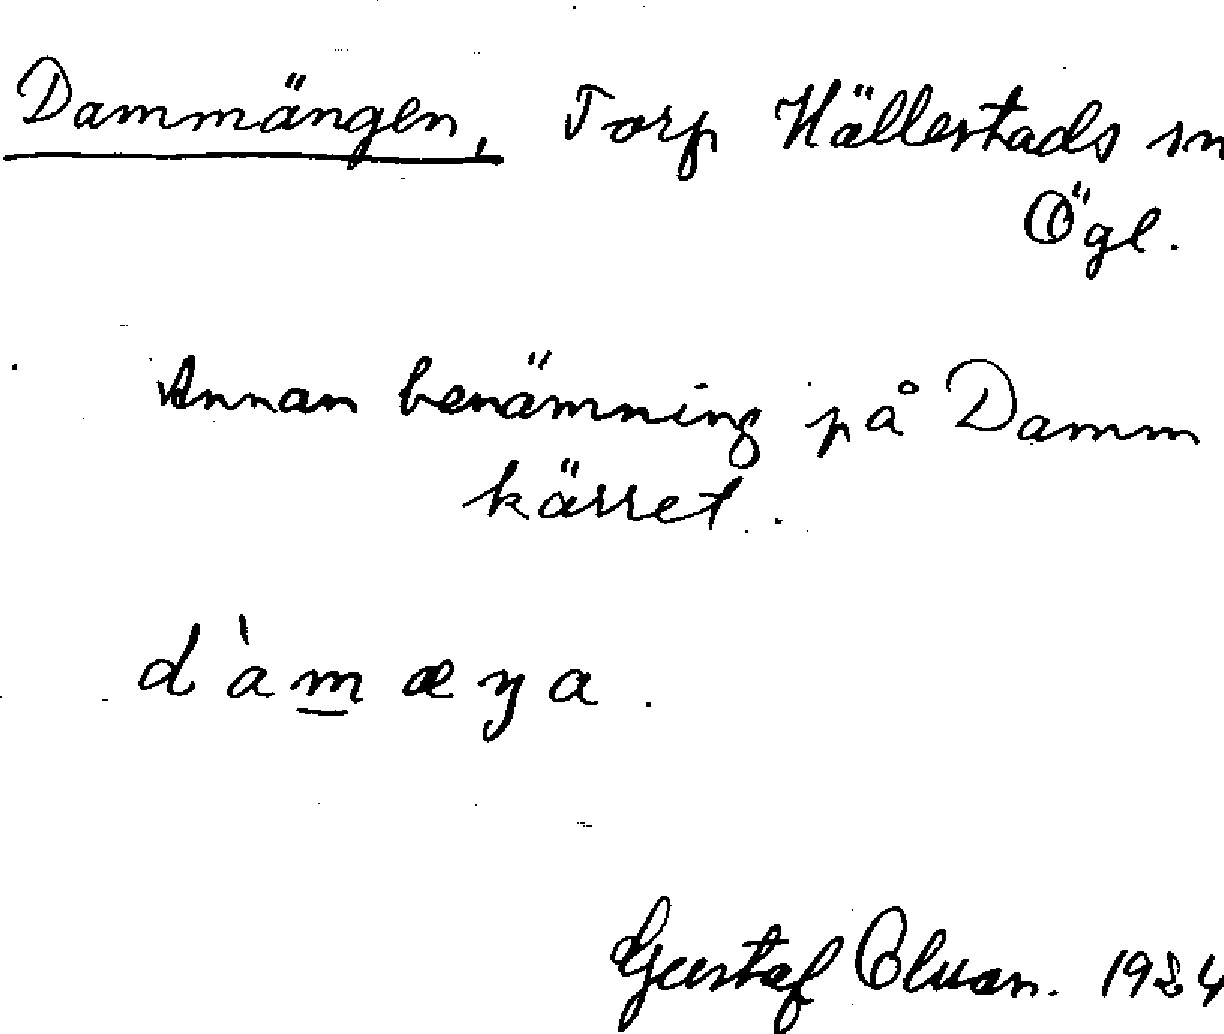 Dammängen, Torp Hällestads sn
Ögl.
Annan benämning på Damm
kärret.
d'àmæŋa.
Gustaf 1924